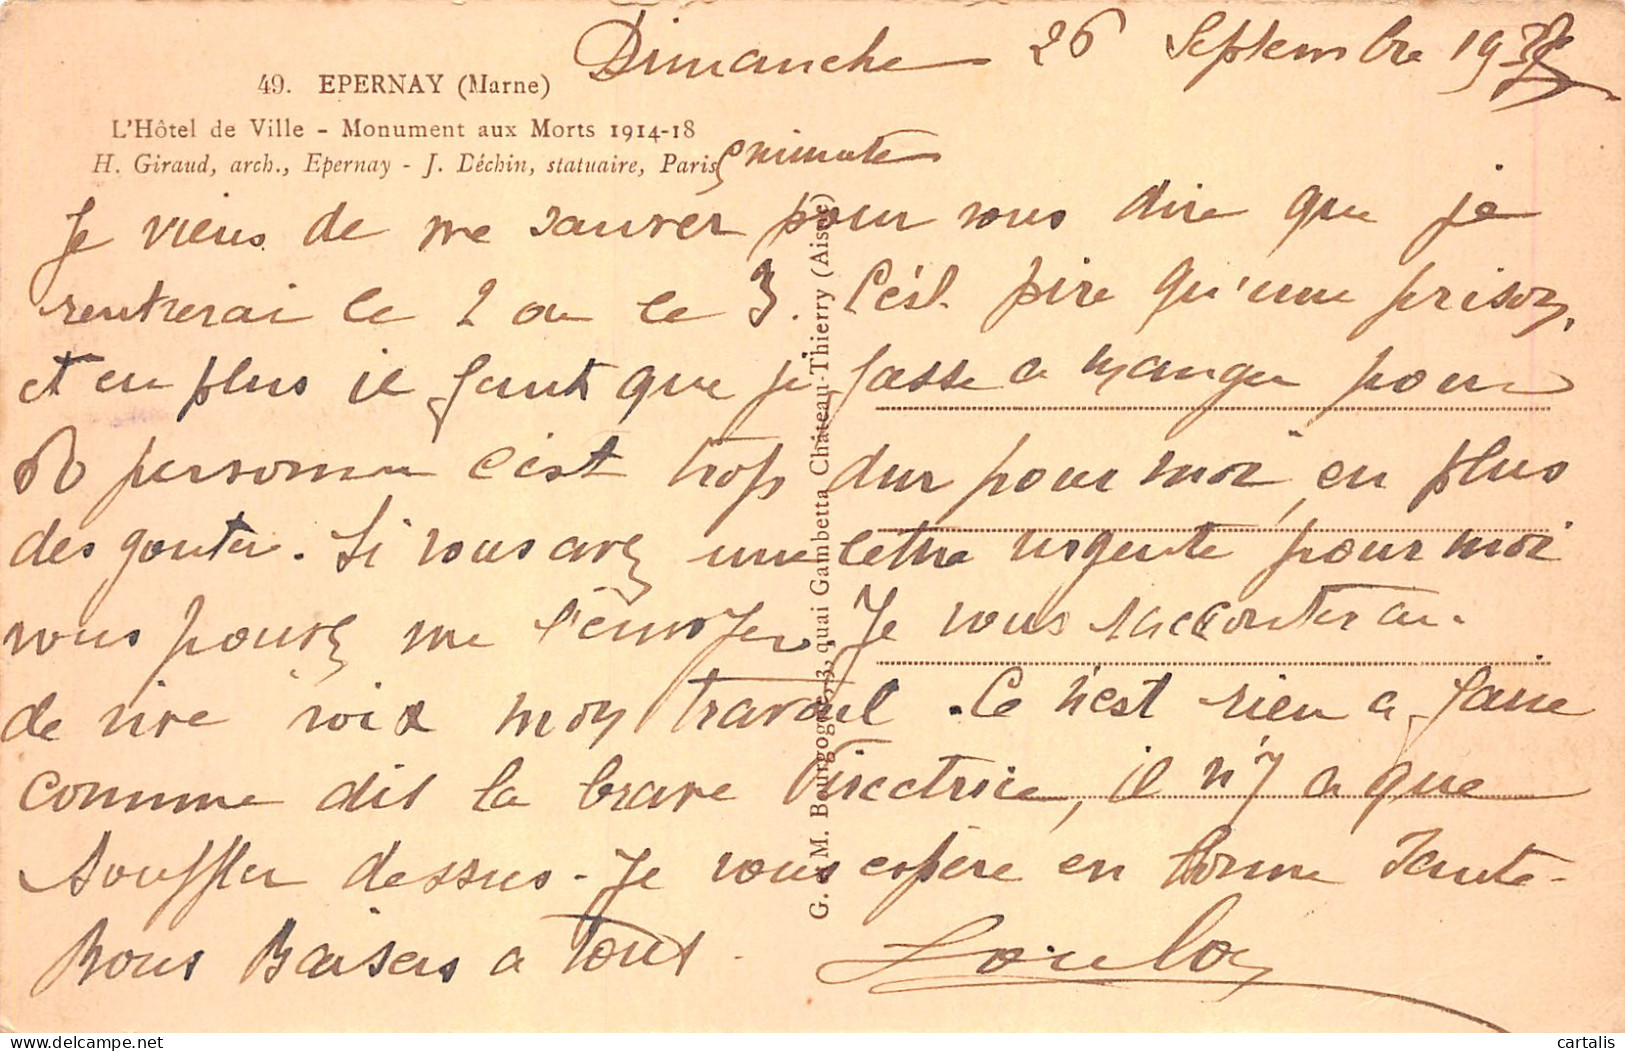 Dimanche 26 Septembre 19
49. EPERNAY (Marne)
L'Hôtel de Ville - Monument aux Morts 1914-18
H. Giraud, arch., Epernay - J. Déchin, statuaire, Paris
minute
Je viens de me sauver pour vous dire que je
rentrerai le 2 ou le 3. C'est pire qu'une prison,
et en plus il faut que je fasse a manger pour
personne c'est trop dur pour moi, en plus
des gouter. Si vous avez une lettre urgente pour moi
vous pouvez me l'envoyer, Je vous racconterai.
de vive voix mon travail. Ce n'est rien a faire
comme dit la brave Directrice, il n'y a que
souffler dessus - Je vous espère en bonne sante -
Bons Baisers a tous. Loulou
G. & M. Bourgogne, 3, quai Gambetta Château-Thierry (Aisne)
cartalis